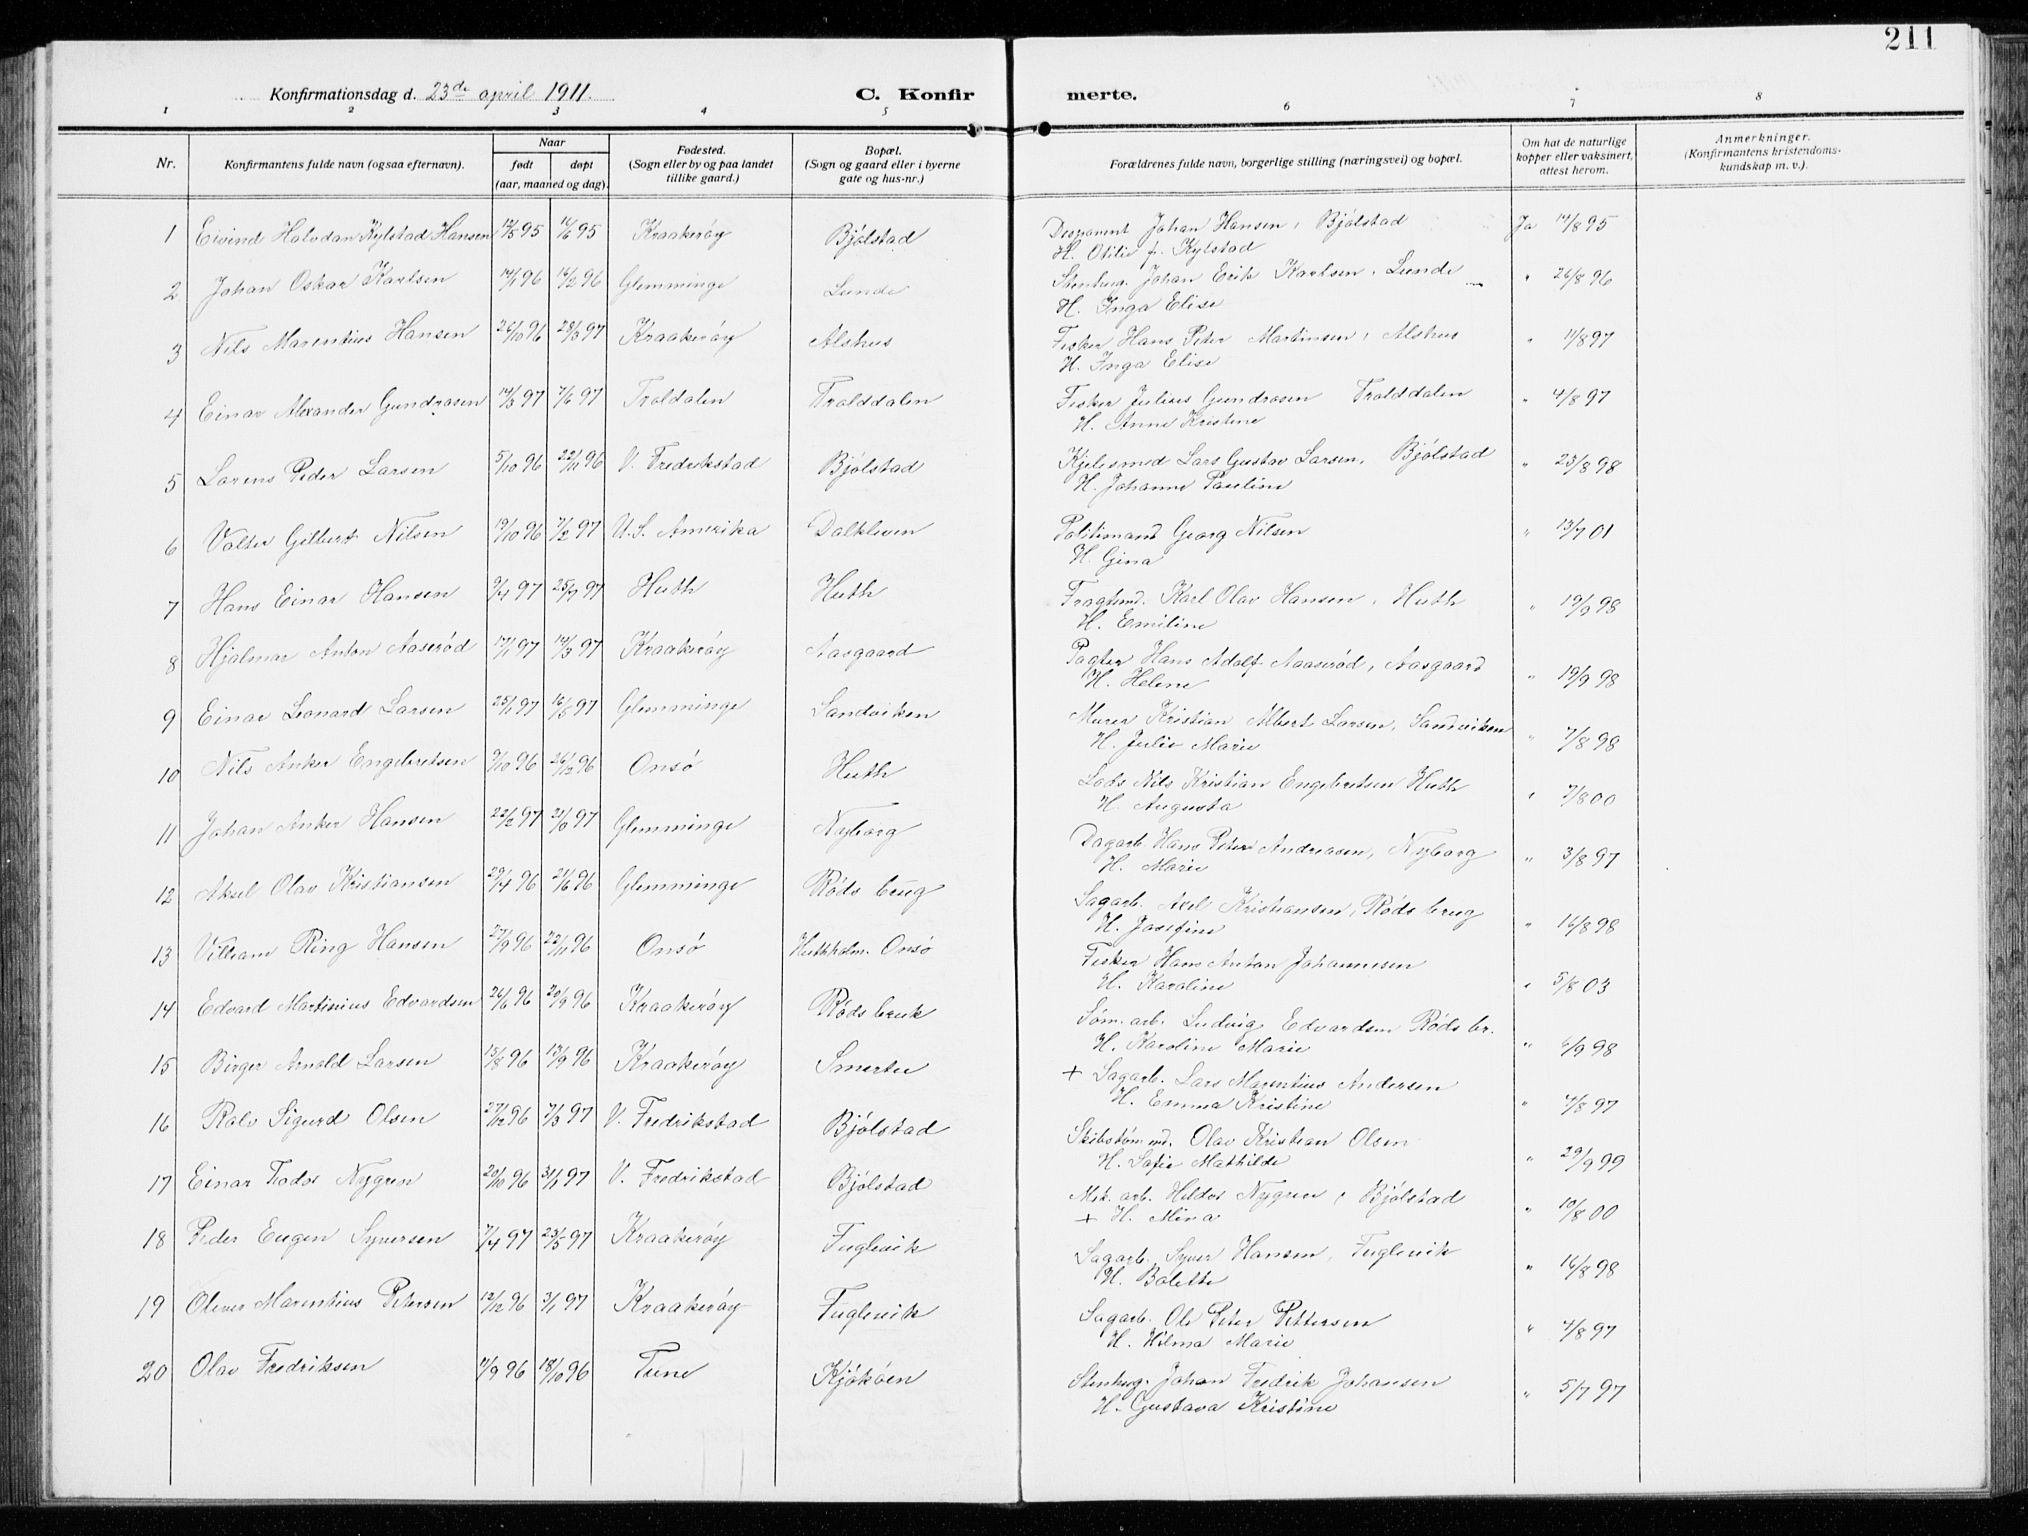 211
Konfirmationsdag d. 23de april 1911. C. Konfir merte.
1 2 3 4 5 6 7 8
Nr. Konfirmantens fulde navn (ogsaa efternavn). Naar født døpt (aar, maaned og dag). Fødested. (Sogn eller by og paa landet tillike gaard.) Bopæl. (Sogn og gaard eller i byerne gate og hus-nr.) Forældrenes fulde navn, borgerlige stilling (næringsvei) og bopæl. Om hat de naturlige kopper eller vaksinert, attest herom. Anmerkninger. (Konfirmantens kristendoms- kundskap m. v.).
1 Eivind Halvdan Kylstad Hansen 95 95 Kraakerøy Bjølstad Disponent Johan Hansen, Bjølstad Ja 14/8 95
H. Otilie f. Kylstad
2 Johan Oskar Karlsen 14/1 96 16/2 96 Glemminge Lunde Stenhug. Johan Erik Karlsen, Lunde " 26/8 96
H. Inga Elise
3 Nils Marentius Hansen 26/10 96 28/3 97 Kraakerøy Alshus Fisker Hans Peter Martinsen, Alshus " 11/8 97
H. Inga Elise
4 Einar Alexander Gundrosen 14/3 97 7/6 97 Troldalen Trolddalen Fisker Julius Gundrosen Trolddalen " 4/8 97
H. Anne Kristine
5 Lorens Peder Larsen 5/10 96 22/11 96 V. Fredrikstad Bjølstad Kjelesmed Lars Gustav Larsen, Bjølstad " 23/8 98
H. Johanne Pauline
6 Valter Gilbert Nilsen 19/10 96 7/2 97 U.S. Amerika Dalkleven Politimand Georg Nilsen " 13/7 01
H. Gina
7 Hans Einar Hansen 9/4 97 25/7 97 Huth Huth Fragtemd. Karl Olav Hansen, Huth " 19/9 98
H. Emiline
8 Hjalmar Anton Aaserød 17/1 97 14/3 97 Kraakerøy Aasgaard Pagter Hans Adolf Aaaserød, Aasgaard " 19/9 98
H. Helene
9 Einar Leonard Larsen 25/1 97 16/5 97 Glemminge Sandviken Murer Kristian Albert Larsen, Sandviken " 7/8 98
H. Julie Marie
10 Nils Anker Engebretsen 9/10 96 26/12 96 Onsø Huth Lods Nils Kristian Engebretsen Huth " 7/8 00
H. Augusta
11 Johan Anker Hansen 22/2 97 97 Glemminge Nyborg Dagarb. Hans Peter Andreasen, Nyborg " 3/8 97
H. Marie
12 Aksel Olav Kristiansen 29/4 96 21/6 96 Glemminge Røds brug Sagarb. Axel Kristiansen, Røds brug " 16/8 98
H. Josefine
13 Villiam Ring Hansen 27/9 96 22/11 96 Onsø Huthholm. Onsø Fisker Hans Anton Johannesen " 5/8 03
H. Karoline
14 Edvard Martinius Edvardsen 26/6 96 20/9 96 Kraakerøy Røds bruk Søm. arb. Ludvig Edvardsen Røds br. " 6/9 98
H. Karoline Marie
15 Birger Arnold Larsen 15/8 96 13/9 96 Kraakerøy Smertu + Sagarb. Lars Marentius Andersen " 4/8 97
H. Emma Kristine
16 Rolv Sigurd Olsen 27/12 96 7/3 97 V. Fredrikstad Bjølstad Skibstøm. md. Olav Kristian Olsen " 29/9 99
H. Sofie Mathilde
17 Einar Todos Nygren 20/10 96 31/1 97 V. Fredrikstad Bjølstad Mek. arb. Hildos Nygren, Bjølstad " 10/8 00
+ H. Mina
18 Peder Eugen Syversen 7/4 97 23/5 97 Kraakerøy Fuglevik Sagarb. Syver Hansen, Fuglevik " 16/8 98
H. Bolette
19 Oliver Marentius Petersen 12/12 96 3/1 97 Kraakerøy Fuglevik Sagarb. Ole Peter Pettersen " 4/8 97
H. Hilma Marie
20 Olav Fredriksen 11/9 96 18/10 96 Tune Kjøkøen Stenhug. Johan Fredrik Johansen " 5/7 97
H. Gustava Kristine